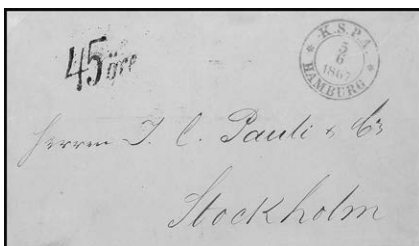 45 öre
K.S.P.A.
5
6
1867
HAMBURG
Herrn J. C. Pauli & Co
Stockholm